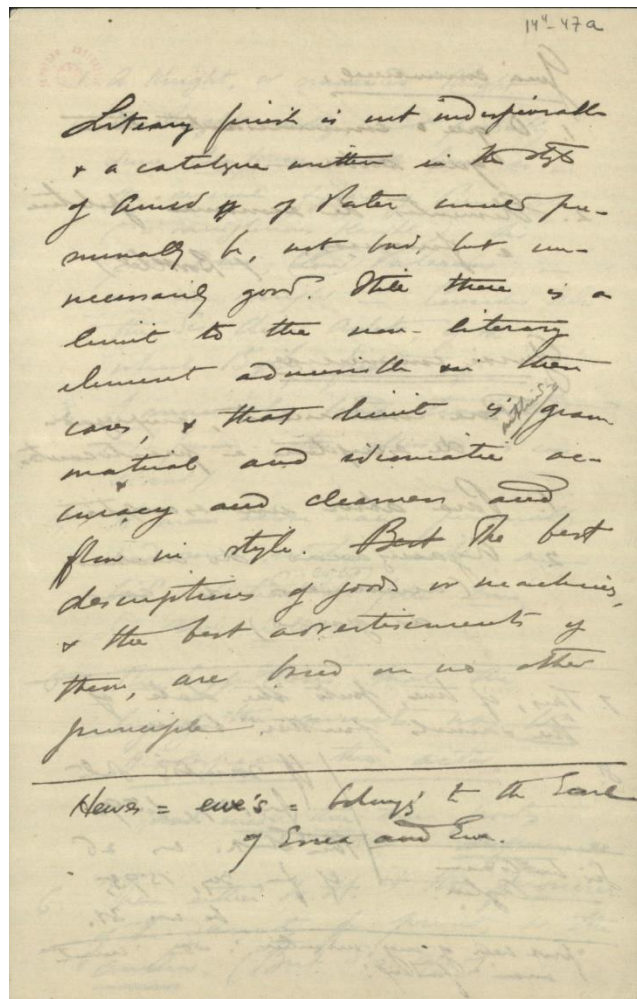 14⁴-47a
Literary finish is not indispensable
& a catalogue written in the style
of Arnold or of Pater would pre-
sumably be, not bad, but un-
necessarily good. Still there is a
limit to the non-literary
element admissible in these
cases, & that limit is within gram-
matical and idiomatic ac-
curacy and clearness and
flow in style. Best The best
descriptions of goods or machines,
& the best advertisements of
them, are based on no other
principle.
Hewes = ewe's = belongs to the Earl
of Essex and Ewe.